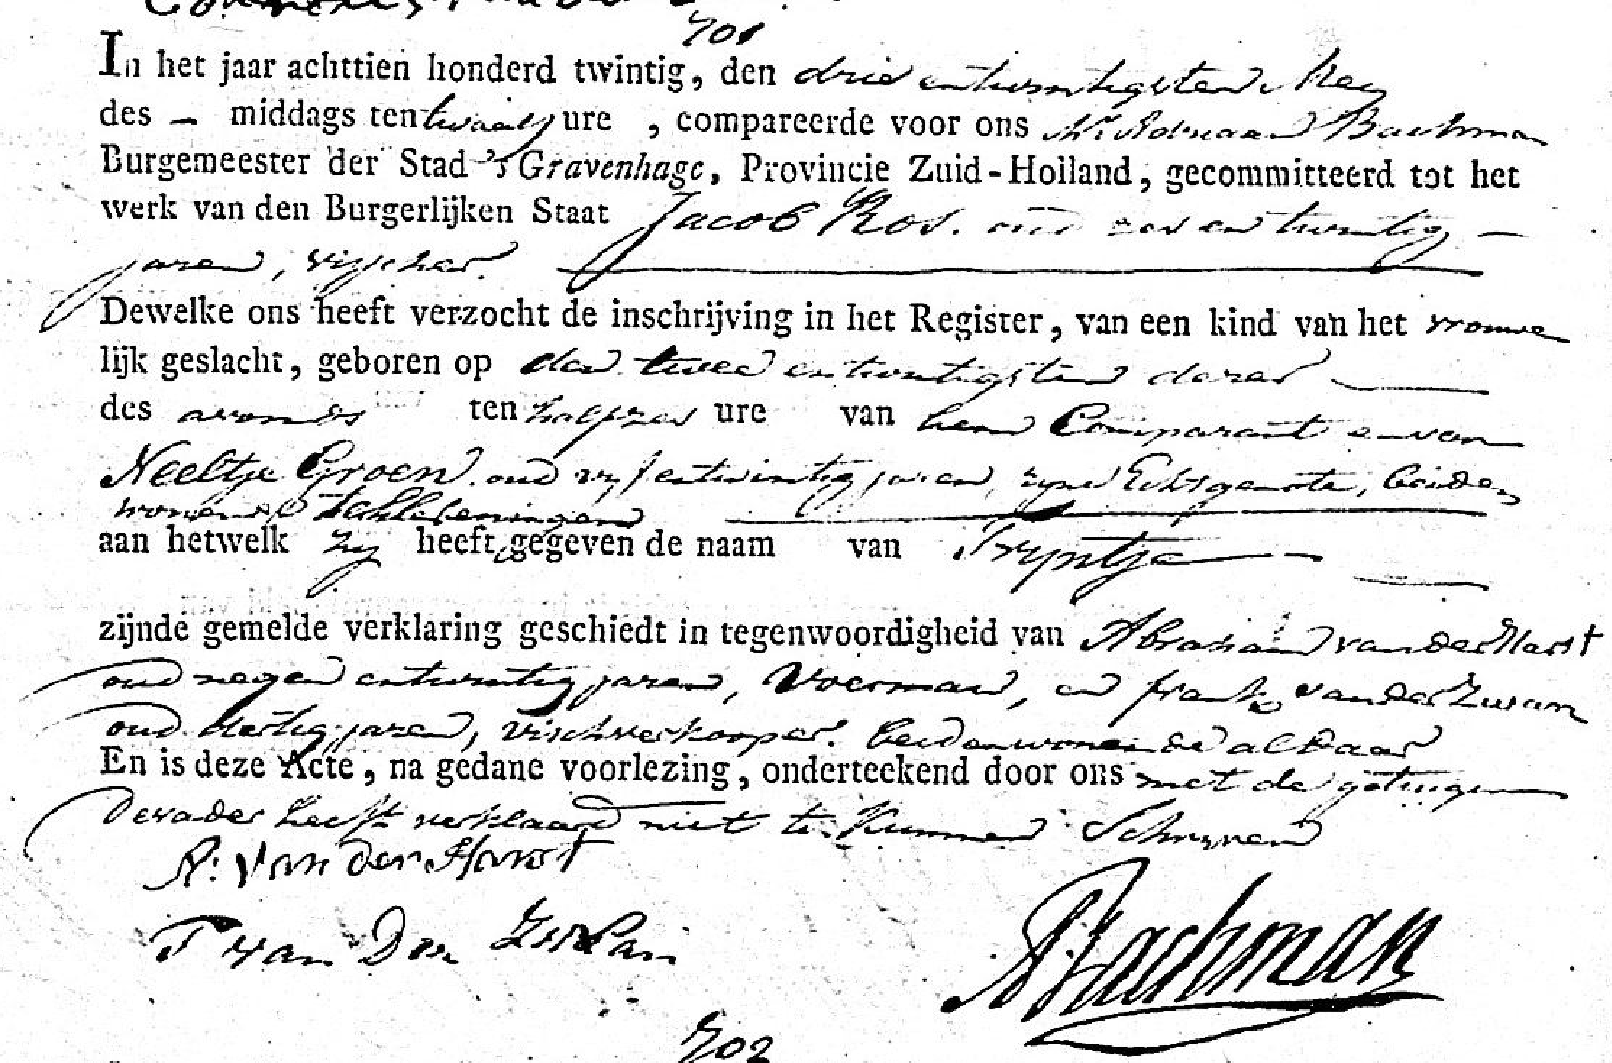 701
In het jaar achttien honderd twintig, den drie entwintigsten Mey
des – middags ten twaalf ure , compareerde voor ons Mr. Adriaan Bachman
Burgemeester der Stad 's Gravenhage, Provincie Zuid-Holland, gecommitteerd tot het
werk van den Burgerlijken Staat Jacob Ros. oud zes en twintig
jaren, visscher.
Dewelke ons heeft verzocht de inschrijving in het Register, van een kind van het vrouwe
lijk geslacht, geboren op den twee entwintigsten dezer
des avonds ten half zes ure van hem Comparant en van
Neeltje Groen oud vyf entwintig jaren, zyne Echtgenote, beiden
wonende te Schleveningen
aan hetwelk zy heeft gegeven de naam van Tryntje
zijnde gemelde verklaring geschiedt in tegenwoordigheid van Abraham van der Harst
oud negen entwintig jaren, Voerman, en frank van der Zwan
oud dertig jaren, vischverkooper. beiden wonende aldaar
En is deze Acte, na gedane voorlezing, onderteekend door ons met de getuigen
de vader heeft verklaard niet te kunnen Schryven
A: Van der Harst
van Der
ABachman
702